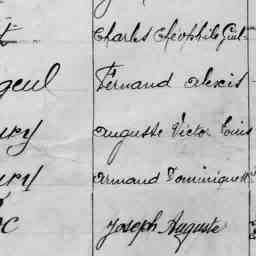 t Charles Théophile Gust-
geul Fernand Alexis
ury Auguste Victor Louis
ury Armand Dominique M
oc Joseph Auguste